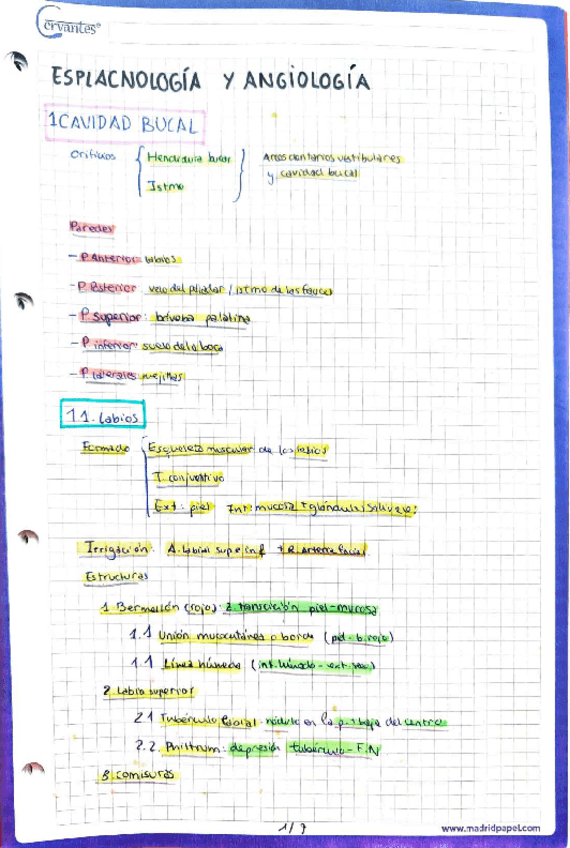 Cervantes®
ESPLACNOLOGÍA Y ANGIOLOGÍA
1 CAVIDAD BUCAL
Orificios Hendidura bucal Arcos dentarios vestibulares
Istmo y cavidad bucal
Paredes
- P. Anterior: labios
- P. Posterior velo del paladar / istmo de las fauces
- P. Superior: bóveda palatina
- P. inferior: suelo de la boca
- P. laterales mejillas
1.1. Labios
Formado Esqueleto muscular de los labios
T. conjuntivo
Ext: piel Int: mucosa + glándulas salivares
Irrigación: A. Labial sup e inf + R. Arteria facial
Estructuras
1 Bermellón (rojo): Z. transición piel-mucosa
1.1 Unión mucocutánea o borde (piel - b. rojo)
1.1 Línea húmeda (int. húmedo - ext. seco)
2 Labio superior
2.1 Tubérculo labial: nódulo en la p. + baja del centro
2.2. Philtrum: depresión tubérculo - F.N
3. comisuras
1/9
www.madridpapel.com